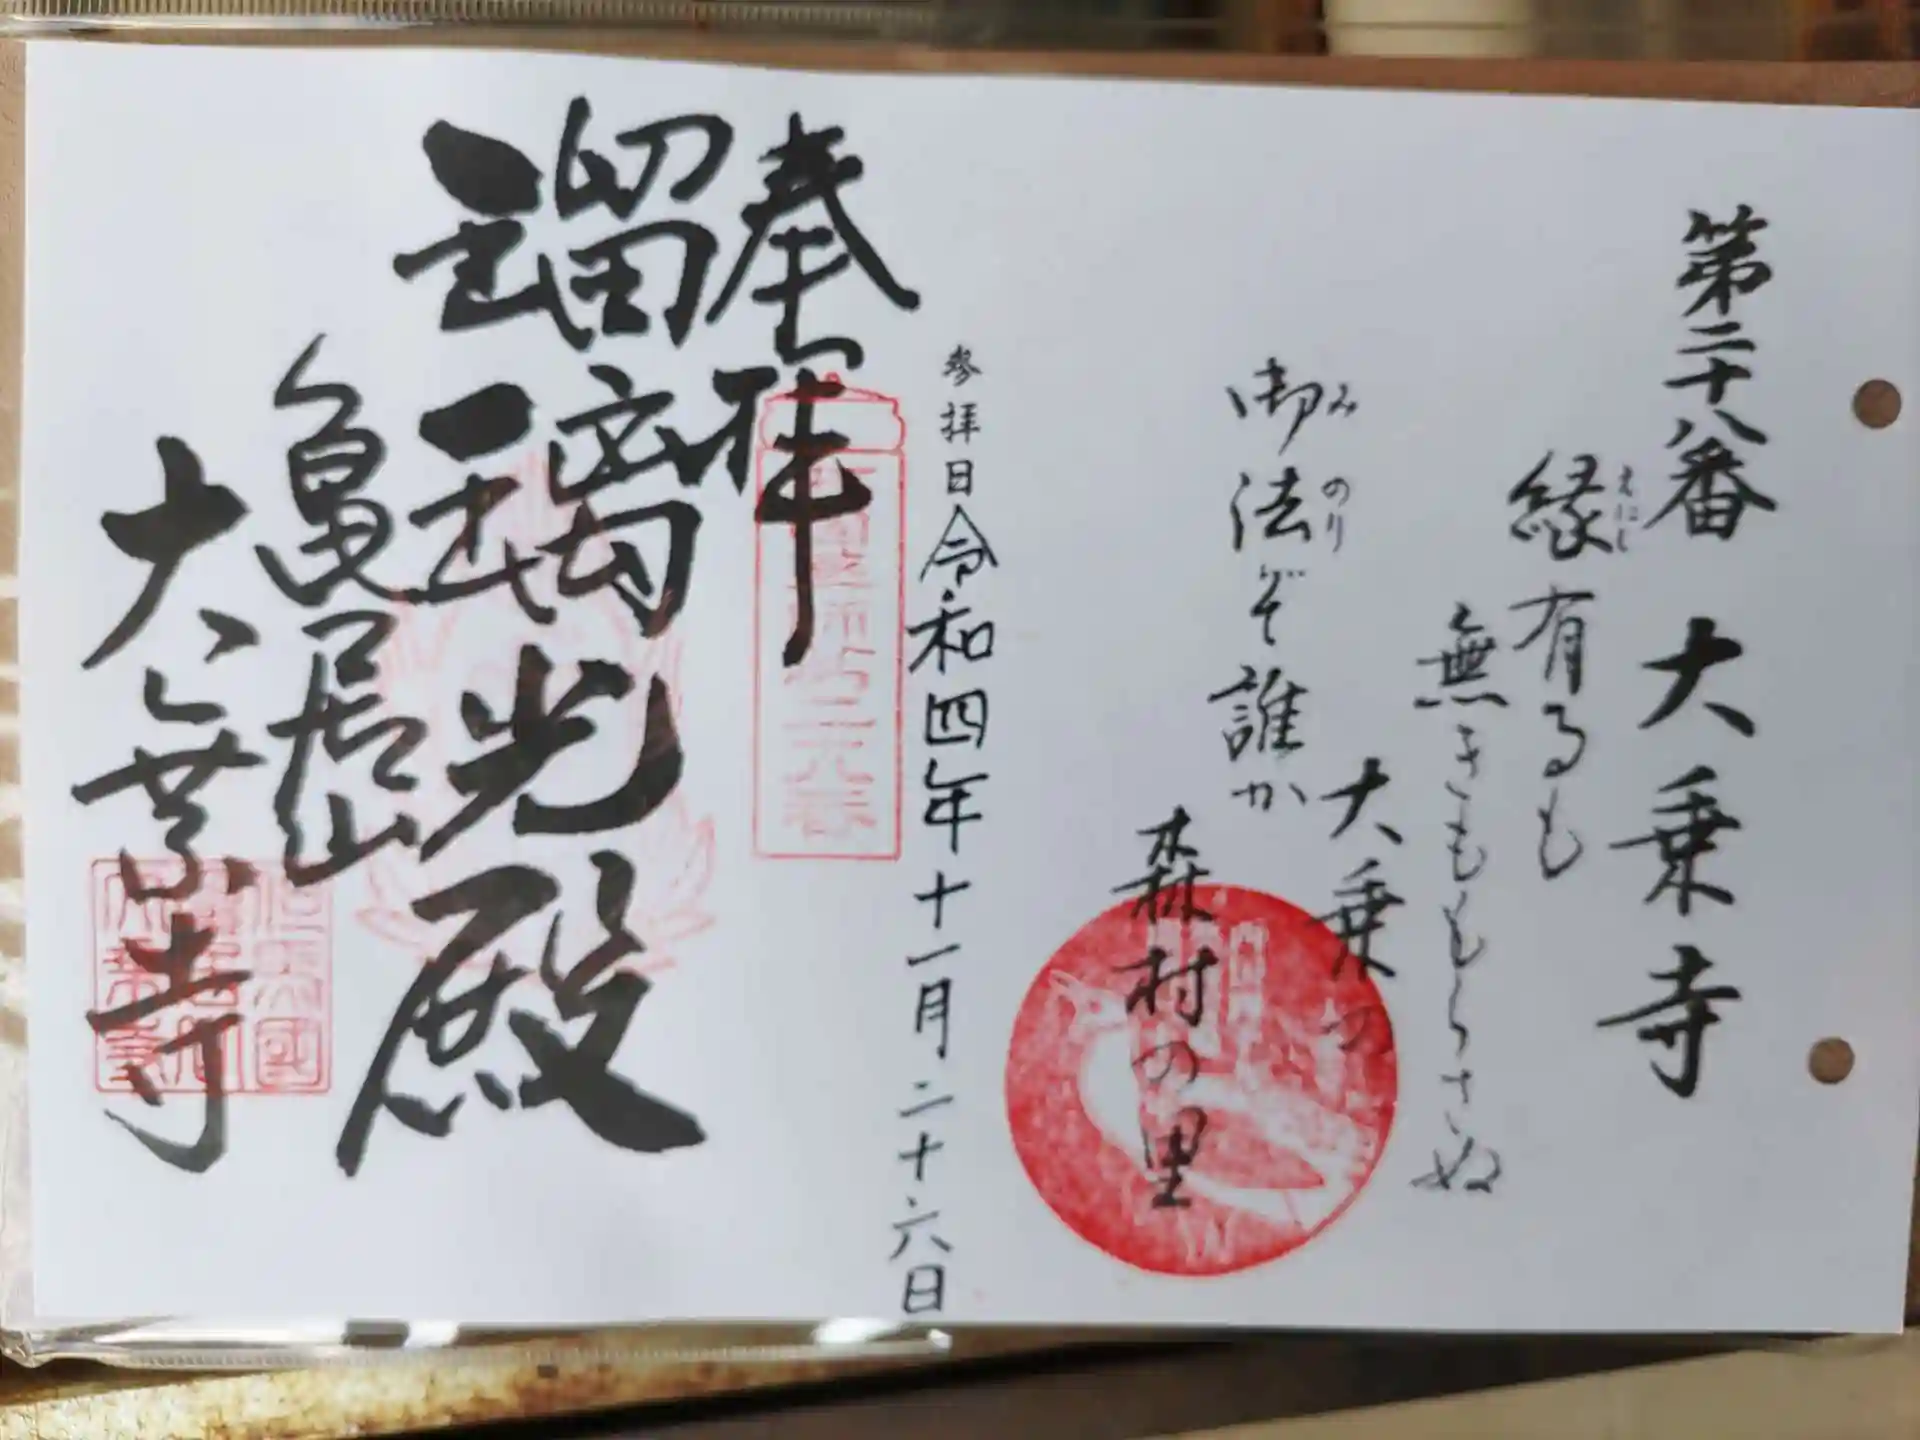 第二十八番 大乗寺
縁有るも
えにし
無きももらさぬ
大乗の
御法ぞ誰か
みのり
森村の里
参拝日令和四年十一月二十六日
奉拝
瑠璃光殿
亀居山
大乗寺